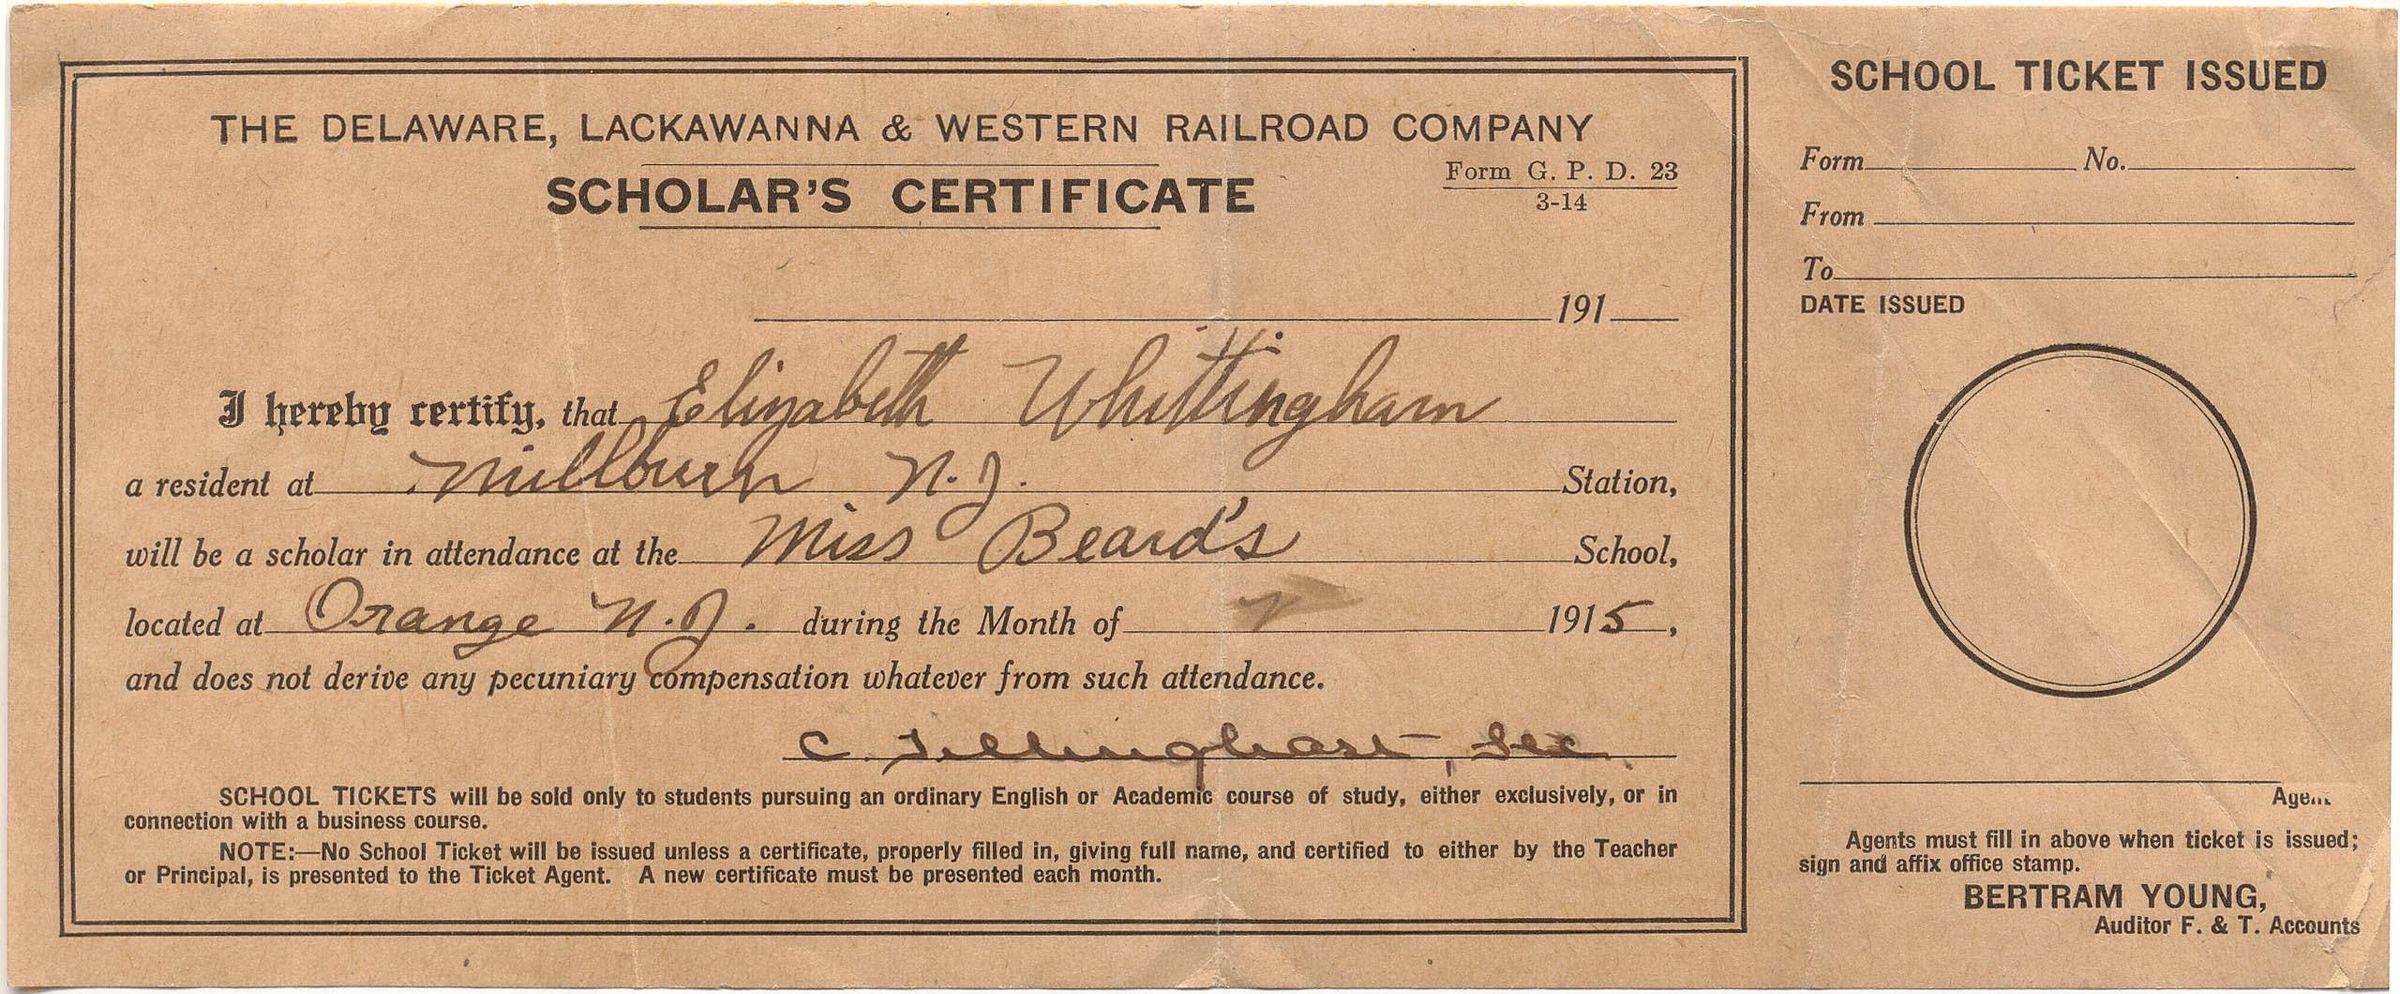 THE DELAWARE, LACKAWANNA & WESTERN RAILROAD COMPANY
SCHOLAR'S CERTIFICATE
Form G. P. D. 23
3-14
191
I hereby certify, that Elizabeth Whittingham
a resident at Millburn N.J. Station,
will be a scholar in attendance at the Miss Beard's School,
located at Orange N.J. during the Month of 1915,
and does not derive any pecuniary compensation whatever from such attendance.
C. Tillinghast, Sec.
SCHOOL TICKETS will be sold only to students pursuing an ordinary English or Academic course of study, either exclusively, or in
connection with a business course.
NOTE:—No School Ticket will be issued unless a certificate, properly filled in, giving full name, and certified to either by the Teacher
or Principal, is presented to the Ticket Agent. A new certificate must be presented each month.
SCHOOL TICKET ISSUED
Form No.
From
To
DATE ISSUED
Agent
Agents must fill in above when ticket is issued;
sign and affix office stamp.
BERTRAM YOUNG,
Auditor F. & T. Accounts